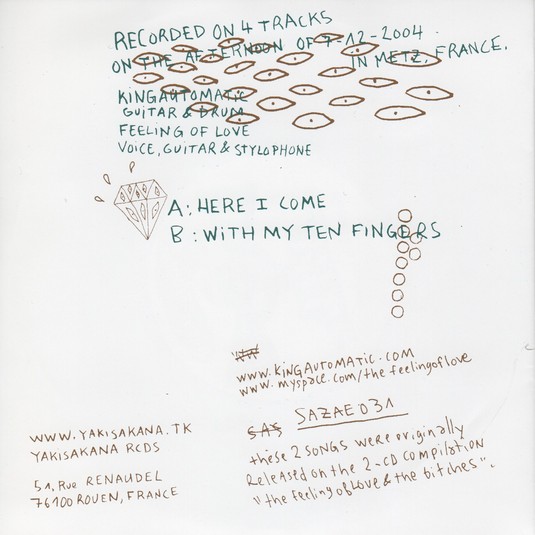 RECORDED ON 4 TRACKS
ON THE AFTERNOON OF 7-12-2004
IN METZ, FRANCE.
KINGAUTOMATIC
GUITAR & DRUM
FEELING OF LOVE
VOICE, GUITAR & STYLOPHONE
A: HERE I COME
B: WITH MY TEN FINGERS
www.KINGAUTOMATIC.COM
www.myspace.com/the feelingoflove
SAS SAZAE031
these 2 SONGS WERE ORIGINALLY
RELEASED ON THE 2-CD COMPILATION
"the feeling of Love & the bitches".
WWW.YAKISAKANA.TK
YAKISAKANA RCDS
51, RUE RENAUDEL
76100 ROUEN, FRANCE